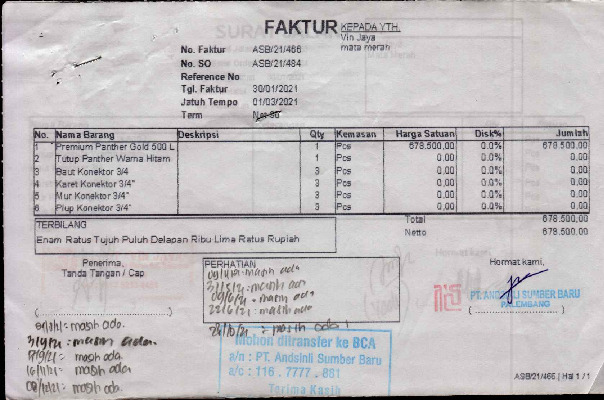 FAKTUR
KEPADA YTH.
Vin Jaya
mata merah
No. Faktur ASB/21/466
No. SO ASB/21/494
Reference No
Tgl. Faktur 30/01/2021
Jatuh Tempo 01/03/2021
Term Net 30
No. Nama Barang Deskripsi Qty Kemasan Harga Satuan Disk% Jumlah
1 Premium Panther Gold 500 L 1 Pcs 678.500,00 0.0% 678.500,00
2 Tutup Panther Warna Hitam 1 Pcs 0,00 0.0% 0,00
3 Baut Konektor 3/4 3 Pcs 0,00 0.0% 0,00
4 Karet Konektor 3/4" 3 Pcs 0,00 0.0% 0,00
5 Mur Konektor 3/4" 3 Pcs 0,00 0.0% 0,00
6 Plup Konektor 3/4" 3 Pcs 0,00 0.0% 0,00
TERBILANG
Enam Ratus Tujuh Puluh Delapan Ribu Lima Ratus Rupiah
Total 678.500,00
Netto 678.500,00
Penerima,
Tanda Tangan / Cap
PERHATIAN
masih ada
masih ada
masih ada
22/6/21 = masih ada
masih ada
Hormat kami,
PT. ANDSINLI SUMBER BARU
PALEMBANG
masih ada.
masih ada.
masih ada.
masih ada.
masih ada.
Mohon ditransfer ke BCA
a/n : PT. Andsinli Sumber Baru
a/c : 116 . 7777 . 881
Terima Kasih
ASB/21/466 | Hal 1 / 1